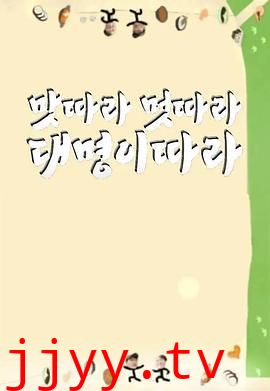 맛따라 멋따라
대명이따라
jjyy.tv